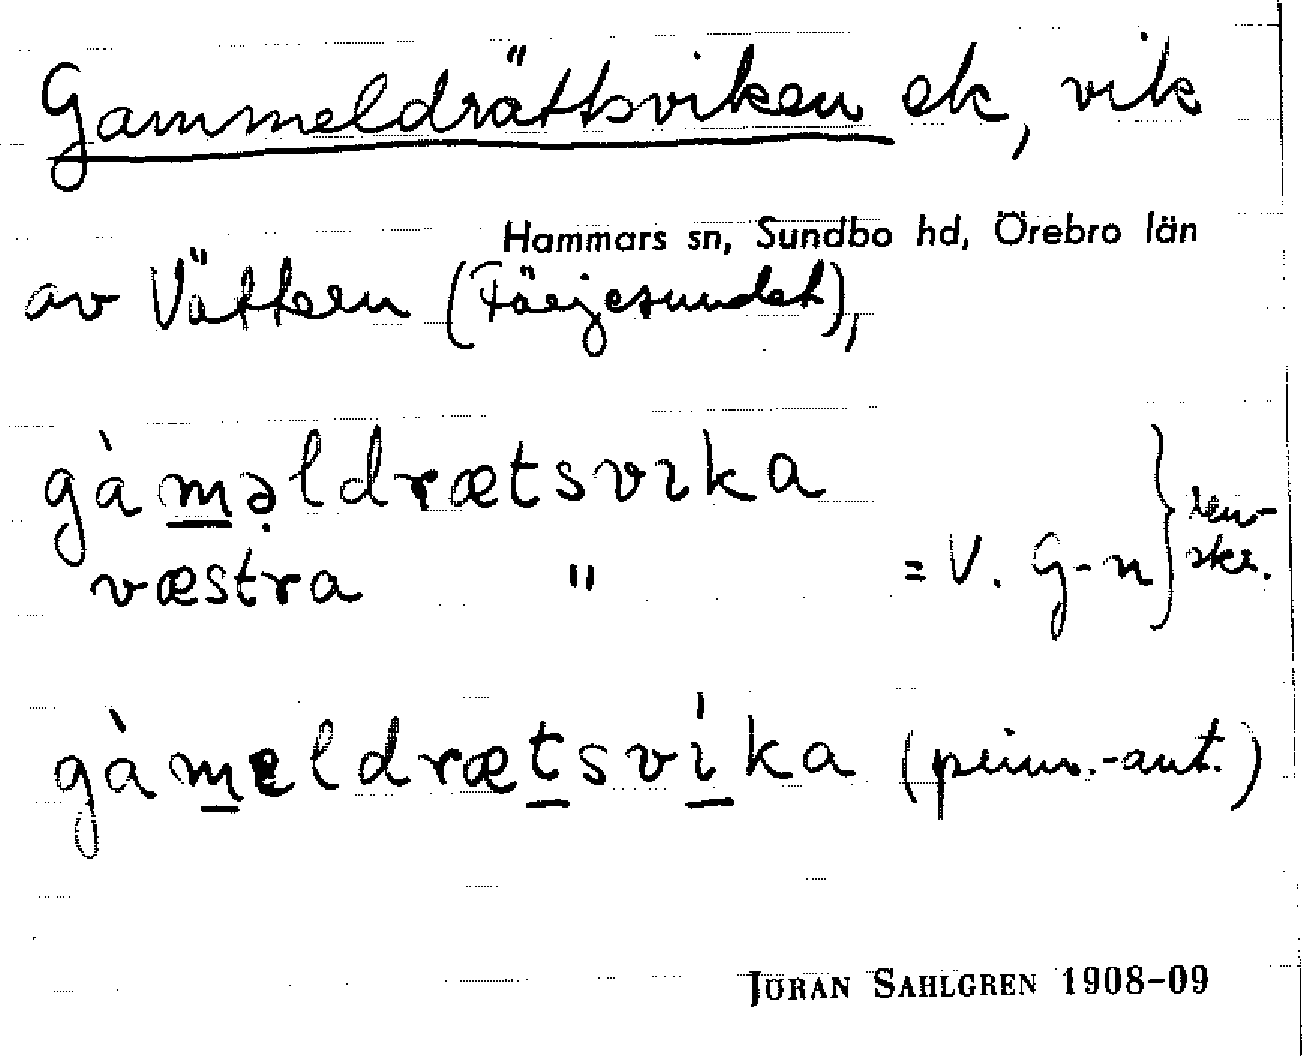 Gammeldrättsviken ek, vik
Hammars sn, Sundbo hd, Örebro län
av Vättern (Färjesundet),
gàmə̣ldrætsvika
væstra " = V. G-n } renskr.
gàmeldrætsvíka (prim.-ant.)
JÖRAN SAHLGREN 1908-09